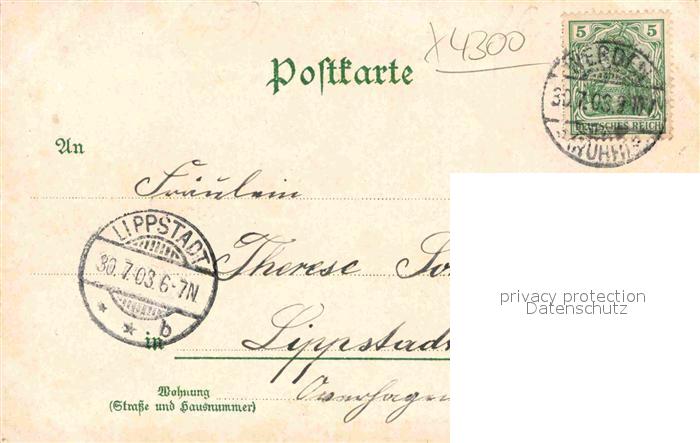 x4300
5 5
Postkarte
DEUTSCHES REICH
WERDEN
30.7.03.
(RUHR)
An
Fräulein
LIPPSTADT
30.7.03.6-7N
* * b
Therese
in Lippstadt
Wohnung
(Straße und Hausnummer)
privacy protection
Datenschutz